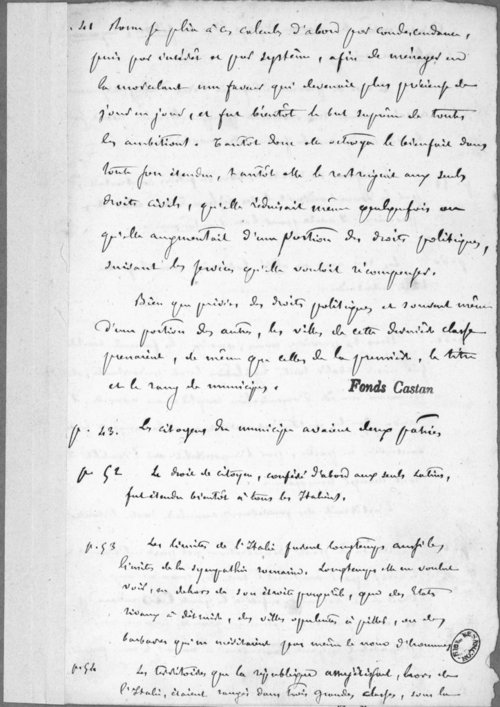 41 Rome se plia à ces calculs d'abord par condescendance,
puis par intérêt et par système, afin de ménager en
la morcelant une faveur qui devenait plus précieuse de
jour en jour, et fut bientôt le but suprême de toutes
les ambitions. Tantôt donc elle octroya le bienfait dans
toute son étendue, tantôt elle le restreignit aux seuls
droits civils, qu'elle réduisait même quelquefois ou
qu'elle augmentait d'une portion des droits politiques,
suivant les services qu'elle voulait récompenser.
Bien que privées des droits politiques et souvent même
d'une portion des autres, les villes de cette dernière classe
prenaient, de même que celles de la première, le titre
et le rang de municipes.
Fonds Castan
p. 43. Les citoyens du municipe avaient deux patries
p. 52 Le droit de citoyen, conféré d'abord aux seuls Latins,
fut étendu bientôt à tous les Italiens.
p. 53 Les limites de l'Italie furent longtemps aussi les
limites de la sympathie romaine. Longtemps elle ne voulut
voir, en dehors de son étroite péninsule, que des Etats
rivaux à détruire, des villes opulentes à piller, ou des
barbares qui ne méritaient pas même le nom d'hommes
p. 54 Les territoires que la république assujétissait, hors de
l'Italie, étaient rangés dans trois grandes classes, sous la